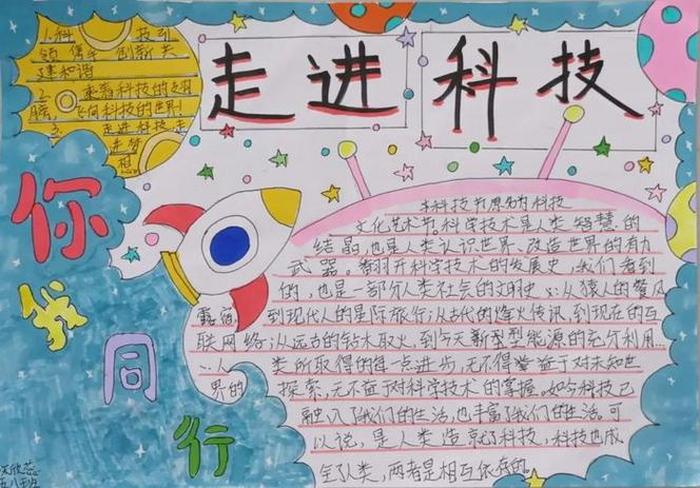 走进科技
1.科技引
领 携手 创新共
建和谐
2. 乘着科技的翅
膀,飞向科技的世界!
3. 走进科技 走
进梦
想
你我同行
本科技节原名为科技
文化艺术节,科学技术是人类智慧的
结晶,也是人类认识世界、改造世界的有力
武器。翻开科学技术的发展史,我们看到
的,也是一部分人类社会的文明史:从猿人的餐风
露宿,到现代人的星际旅行;从古代的烽火传讯,到现在的互
联网络;从远古的钻木取火,到今天新型型能源的充分利用...
...人类所取得的每一点进步,无不得益于对未知世
界的探索,无不益于对科学技术的掌握。如今科技已
融入了我们的生活,也丰富了我们的生活。可
以说,是人类造就了科技,科技也成
全了人类,两者是相互依存的。
欣蕊
五八班